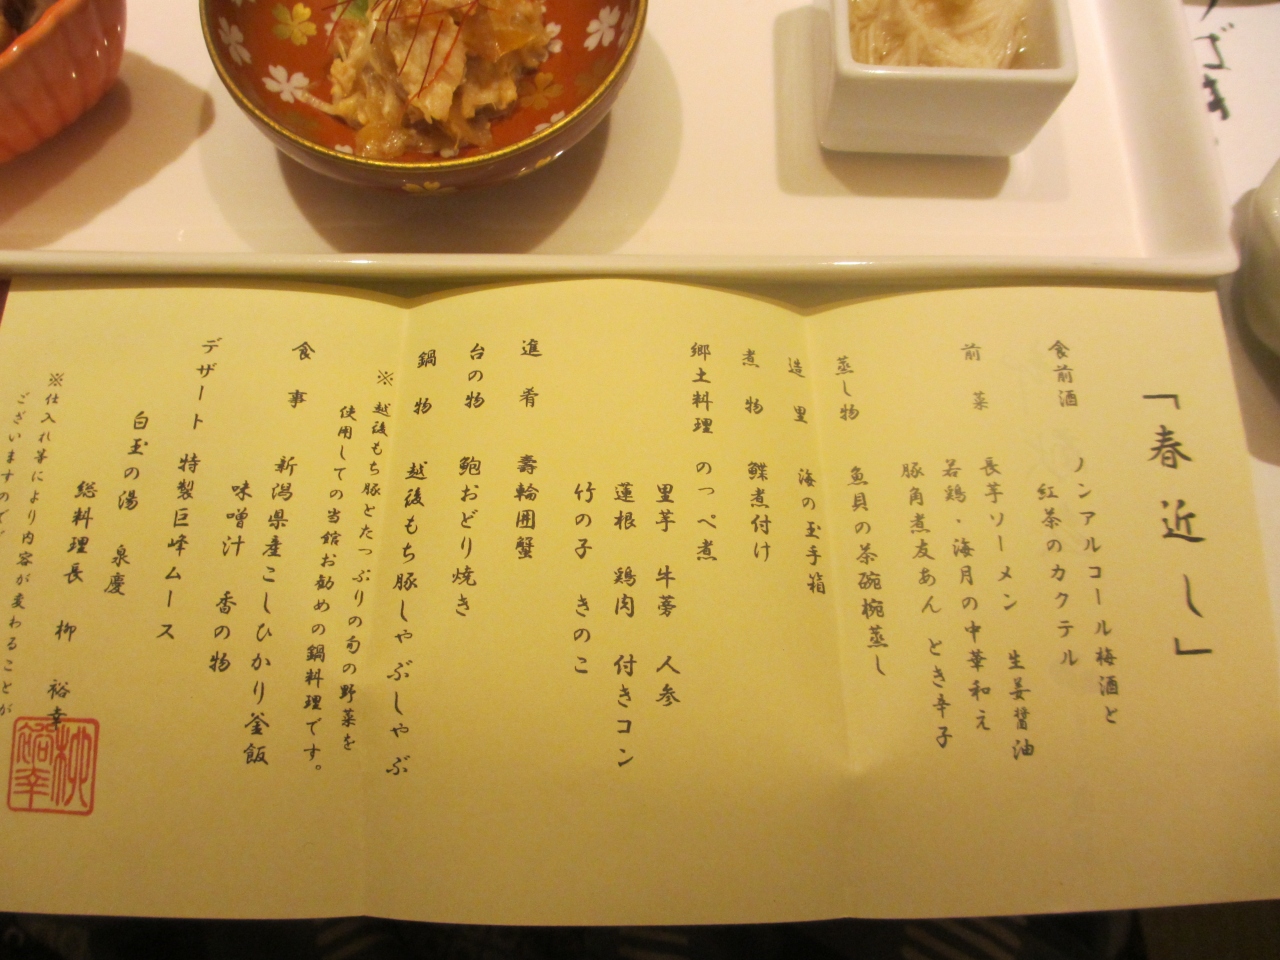 「春近し」
食前酒 ノンアルコール梅酒と
紅茶のカクテル
前菜 長芋ソーメン 生姜醤油
若鶏・海月の中華和え
豚角煮友あん とき辛子
蒸し物 魚貝の茶碗椀蒸し
造里 海の玉手箱
煮物 鰈煮付け
郷土料理 のっぺ煮
里芋 牛蒡 人参
蓮根 鶏肉 付きコン
竹の子 きのこ
進肴 壽輪囲蟹
台の物 鮑おどり焼き
鍋物 越後もち豚しゃぶしゃぶ
※越後もち豚とたっぷりの旬の野菜を
使用しての当館お勧めの鍋料理です。
食事 新潟県産こしひかり釜飯
味噌汁 香の物
デザート 特製巨峰ムース
白玉の湯 泉慶
総料理長 柳 裕幸
※仕入れ等により内容が変わることが
ございますので
柳裕幸